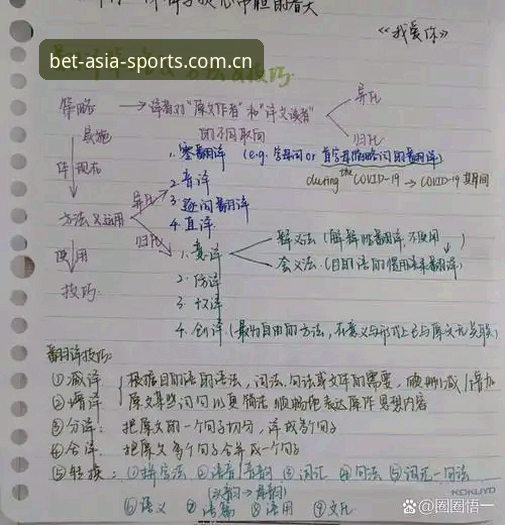 《我爱你》
bet-asia-sports.com.cn
策略 → 译者对"原文作者"和"译文读者" 异化
的不同取向 归化
实施
体现在
1. 零翻译 (e.g. 字母词 or 首字母缩略词的翻译)
异化 2. 音译 during the COVID-19 → COVID-19 期间
方法 运用 3. 逐词翻译
4. 直译
归化 1. 意译 释义法 (解释性翻译, 不使用
使用 会义法 (目的语的惯用法来翻译)
2. 仿译
技巧 3. 改译
4. 创译 (最为自由的方法, 在意义与形式上已与原文无关联)
翻译技巧:
①减译 根据目的语的语法, 词法, 句法或文体的需要, 删减/增加
②增译 原文某些词句以更简洁顺畅地表达原作思想内容
③分译: 把原文的一个句子切分, 译成多个句子
④合译: 把原文多个句子合并成一个句子
⑤转换: ①拼字法 ②语音/音韵 ③词汇 ④句法 ⑤词汇-句法
(头韵→尾韵)
⑥语义 ⑦语篇 ⑧语用 ⑨文化
KOKUYO
@圈圈悟一